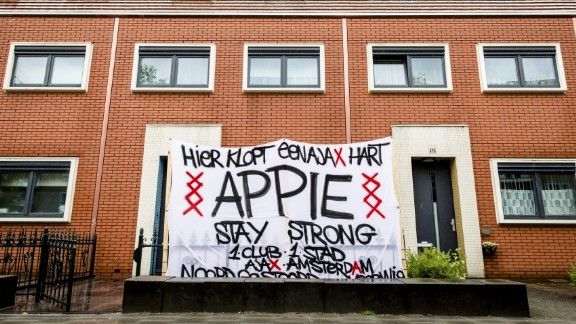 HiER KLOPT EEN AJAX HART
APPIE
STAY STRONG
1 CLUB · 1 STAD
AJAX · AMSTERDAM
NOORD